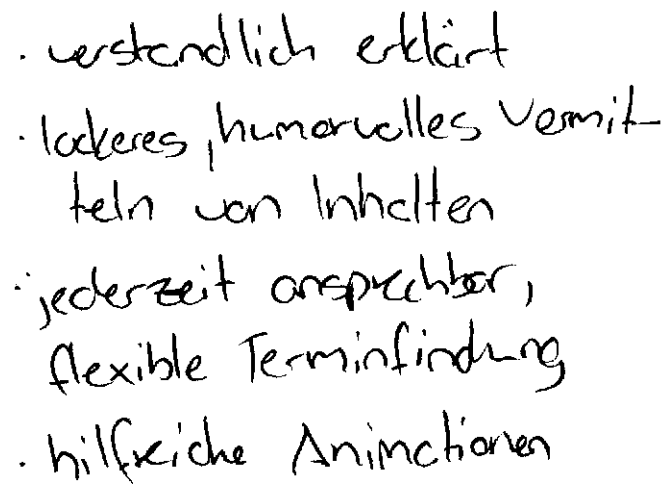 · verständlich erklärt
· lockeres, humorvolles Vermit-
teln von Inhalten
· jederzeit ansprechbar,
flexible Terminfindung
· hilfreiche Animationen